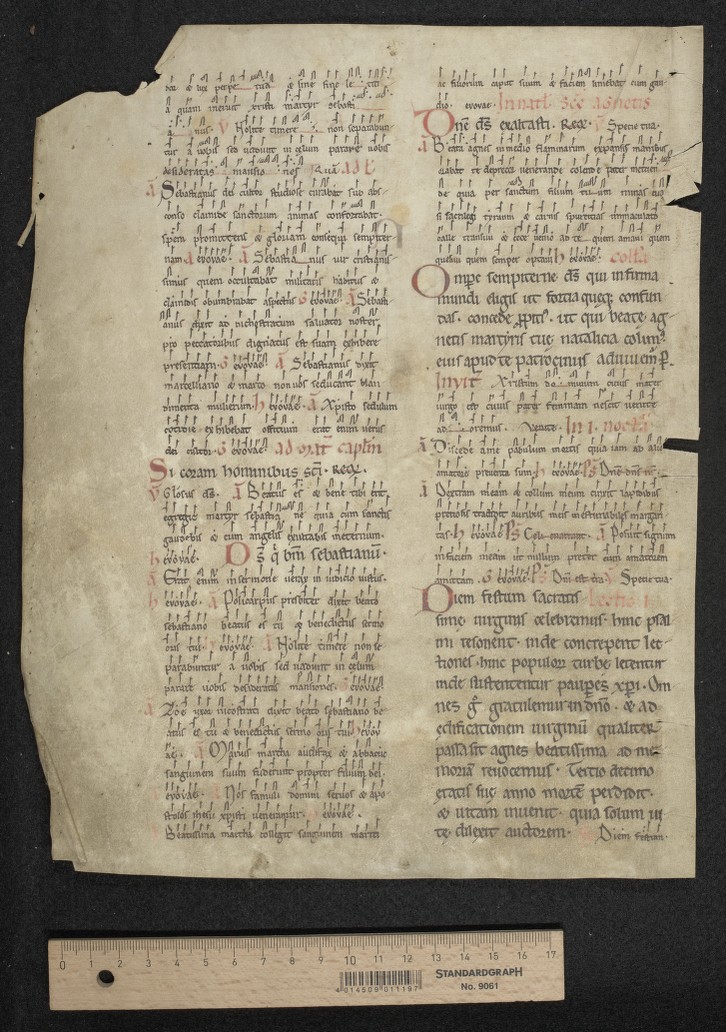 a quam meruit xpisti martyr sebasti
a nus. V Nolite timere non separabun
tur a vobis sed vadunt in celum parare vobis
desideratas mansio nes
A Sebastianus dei cultor studiose curabat sub abs
conso clamide sanctorum animas confortabat.
spem promittens & gloriam consequi sempiter
nam. evovae. A Sebastia nus vir cristianis
simus quem occultabat militaris habitus &
clamidis obumbrabat aspectus evovae. A Sebasti
anus dixit ad nichostratum salvator noster
pro peccatoribus dignatus est suam exhibere
presentiam. evovae. A Sebastianus dixit
marcelliano & marco non vos seducant blan
dimenta mulierum. evovae. A Xpisto sedulum
cotidie exhibebat officium erat enim verus
dei cultor. evovae. ad mat capitlm
Si coram hominibus
V Gl̄osus ds̄. A Beatus es & bene tibi erit
egregie martyr sebastia ne quia cum sanctis
gaudebis & cum angelis exultabis ineternum.
evovae. Ds̄ q̇ bm̄ sebastianū.
A Erat enim in sermone verax in iudicio iustus.
evovae. A Policarpus presbiter dixit beato
sebastiano beatus es tu & benedictus sermo
oris tui. evovae. A Nolite timere non se
parabuntur a vobis sed vadunt in celum
parare vobis desideratas mansiones. evovae
A Zoe uxor nicostrati dixit beato sebastiano be
atus es tu & benedictus sermo oris tui. evov
ae. A Marius martha audifax & abbacuc
sanguinem suum fuderunt propter filium dei.
evovae. A Nos famuli domini servos & apo
stolos ihesu xpisti veneramur. evovae.
Beatissima martha collegit sanguinem marti
ac filiorum caput suum & faciem liniebat cum gau
dio. evovae. In natl sc̄e agnetis
Dn̄e ds̄ exaltasti. Specie tua.
A Beata agnes in medio flammarum expansis manibus
orabat te deprecor venerande colende pater metuen
de quia per sanctum filium tuum minas eva
si sacrilegi tyranni & carnis spurcitias immaculato
calle transivi & ecce venio ad te quem amavi quem
quesivi quem semper optavi. evovae. collta
Omp̄s sempiterne ds̄ qui infirma
mundi eligis ut fortia queq; confun
das. concede ppitꝰ. ut qui beate ag
netis martyris tue natalicia colimꝰ.
eius apud te patrocinia sentiamus. P.
Invit Xristum do minum cuius mater
virgo est cuius pater feminam nescit venite
ad oremus. Venite. In i. noct̄
A Discede a me pabulum mortis quia iam ab alio
amatore preventa sum. evovae. Ps̄ Dn̄e dn̄s nr̄.
A Dextram meam & collum meum cinxit lapidibus
preciosis tradidit auribus meis inestimabiles margari
tas. evovae Ps̄ Celi enarrant. A Posuit signum
in faciem meam ut nullum preter eum amatorem
admittam. evovae. Ps̄ Dn̄i est tra. V Specie tua.
Diem festum sacratis Lectio i
sime virginis celebremus. hinc psal
mi resonent. inde concrepent lec
tiones. hinc populor turbe letentur
inde sustententur paupes xp̄i. Om
nes gͦ gratulemur in dn̄o. & ad
edificationem virginū qualiter
passa sit agnes beatissima ad me
moriam revocemus. Tertio decimo
etatis sue anno mortē perdidit.
& vitam invenit. quia solum vi
te dilexit auctorem. Diem festum.